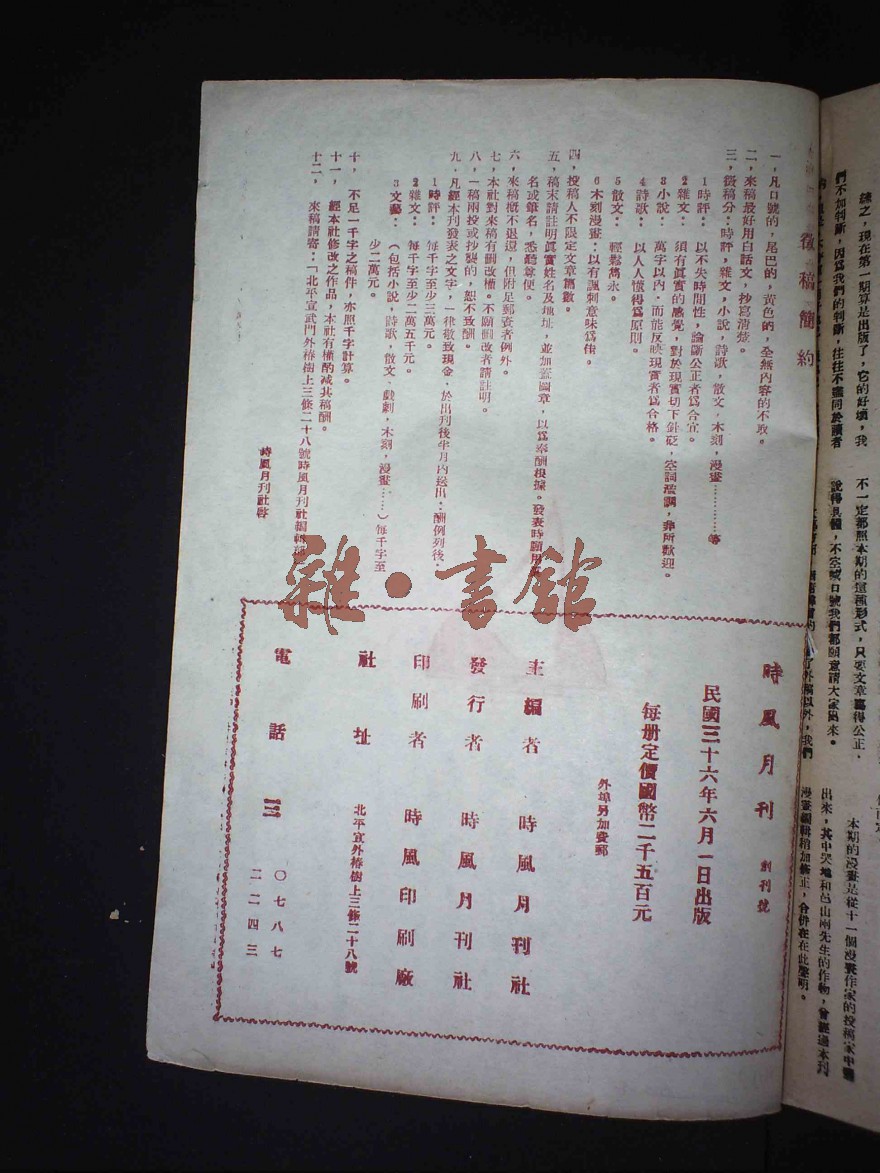 練之,現在第一期算是出版了,它的好壞,我
們不加判斷,因爲我們的判斷,往往不盡同於讀者
不一定都照本期的這種形式,只要文章寫得公正,
說得具體,不空喊口號我們都願意請大家寫來。
外稿以外,我們
本期的漫畫是從十一個漫畫作家的投稿家中選
出來,其中哭地和邑山兩先生的作物,曾經過本刊
漫畫編輯稍加修正,合併在此聲明。
徵稿簡約
一,凡口號的,尾巴的,黃色的,全無內容的不收。
二,來稿最好用白話文,抄寫清楚。
三,徵稿分:時評,雜文,小說,詩歌,散文,木刻,漫畫…………等
1時評: 以不失時間性,論斷公正者爲合宜。
2雜文: 須有眞實的感覺,對於現實切下針砭,空詞濫調,非所歡迎。
3小說: 萬字以內,而能反映現實者爲合格。
4詩歌: 以人人懂得爲原則。
5散文: 輕鬆雋永。
6木刻漫畫:以有諷刺意味爲佳。
四,投稿人不限定文章篇數。
五,稿末請註明眞實姓名及地址,並加蓋圖章,以爲奉酬根據。發表時願用
名或筆名,悉聽尊便。
六,來稿概不退還,但附足郵資者例外。
七,本社對來稿有刪改權。不願刪改者請註明。
八,一稿兩投或抄襲的,恕不致酬。
九,凡經本刊發表之文字,一律敬致現金,於出刊後半月內送出:酬例列後.
1時評: 每千字至少三萬元。
2雜文: 每千字至少二萬五千元。
3文藝: (包括小說,詩歌,散文,戲劇,木刻,漫畫……)每千字至
少二萬元。
十, 不足一千字之稿件,亦照千字計算。
十一, 經本社修改之作品,本社有權酌減其稿酬。
十二, 來稿請寄:「北平宣武門外椿樹上三條二十八號時風月刊社編輯部
時風月刊社啓
雜·書館
時風月刊 創刊號
民國三十六年六月一日出版
每册定價國幣二千五百元
外埠另加費郵
主編者 時風月刊社
發行者 時風月刊社
印刷者 時風印刷廠
社址 北平宣外椿樹上三條二十八號
電話 三三 〇七八七
二二四三